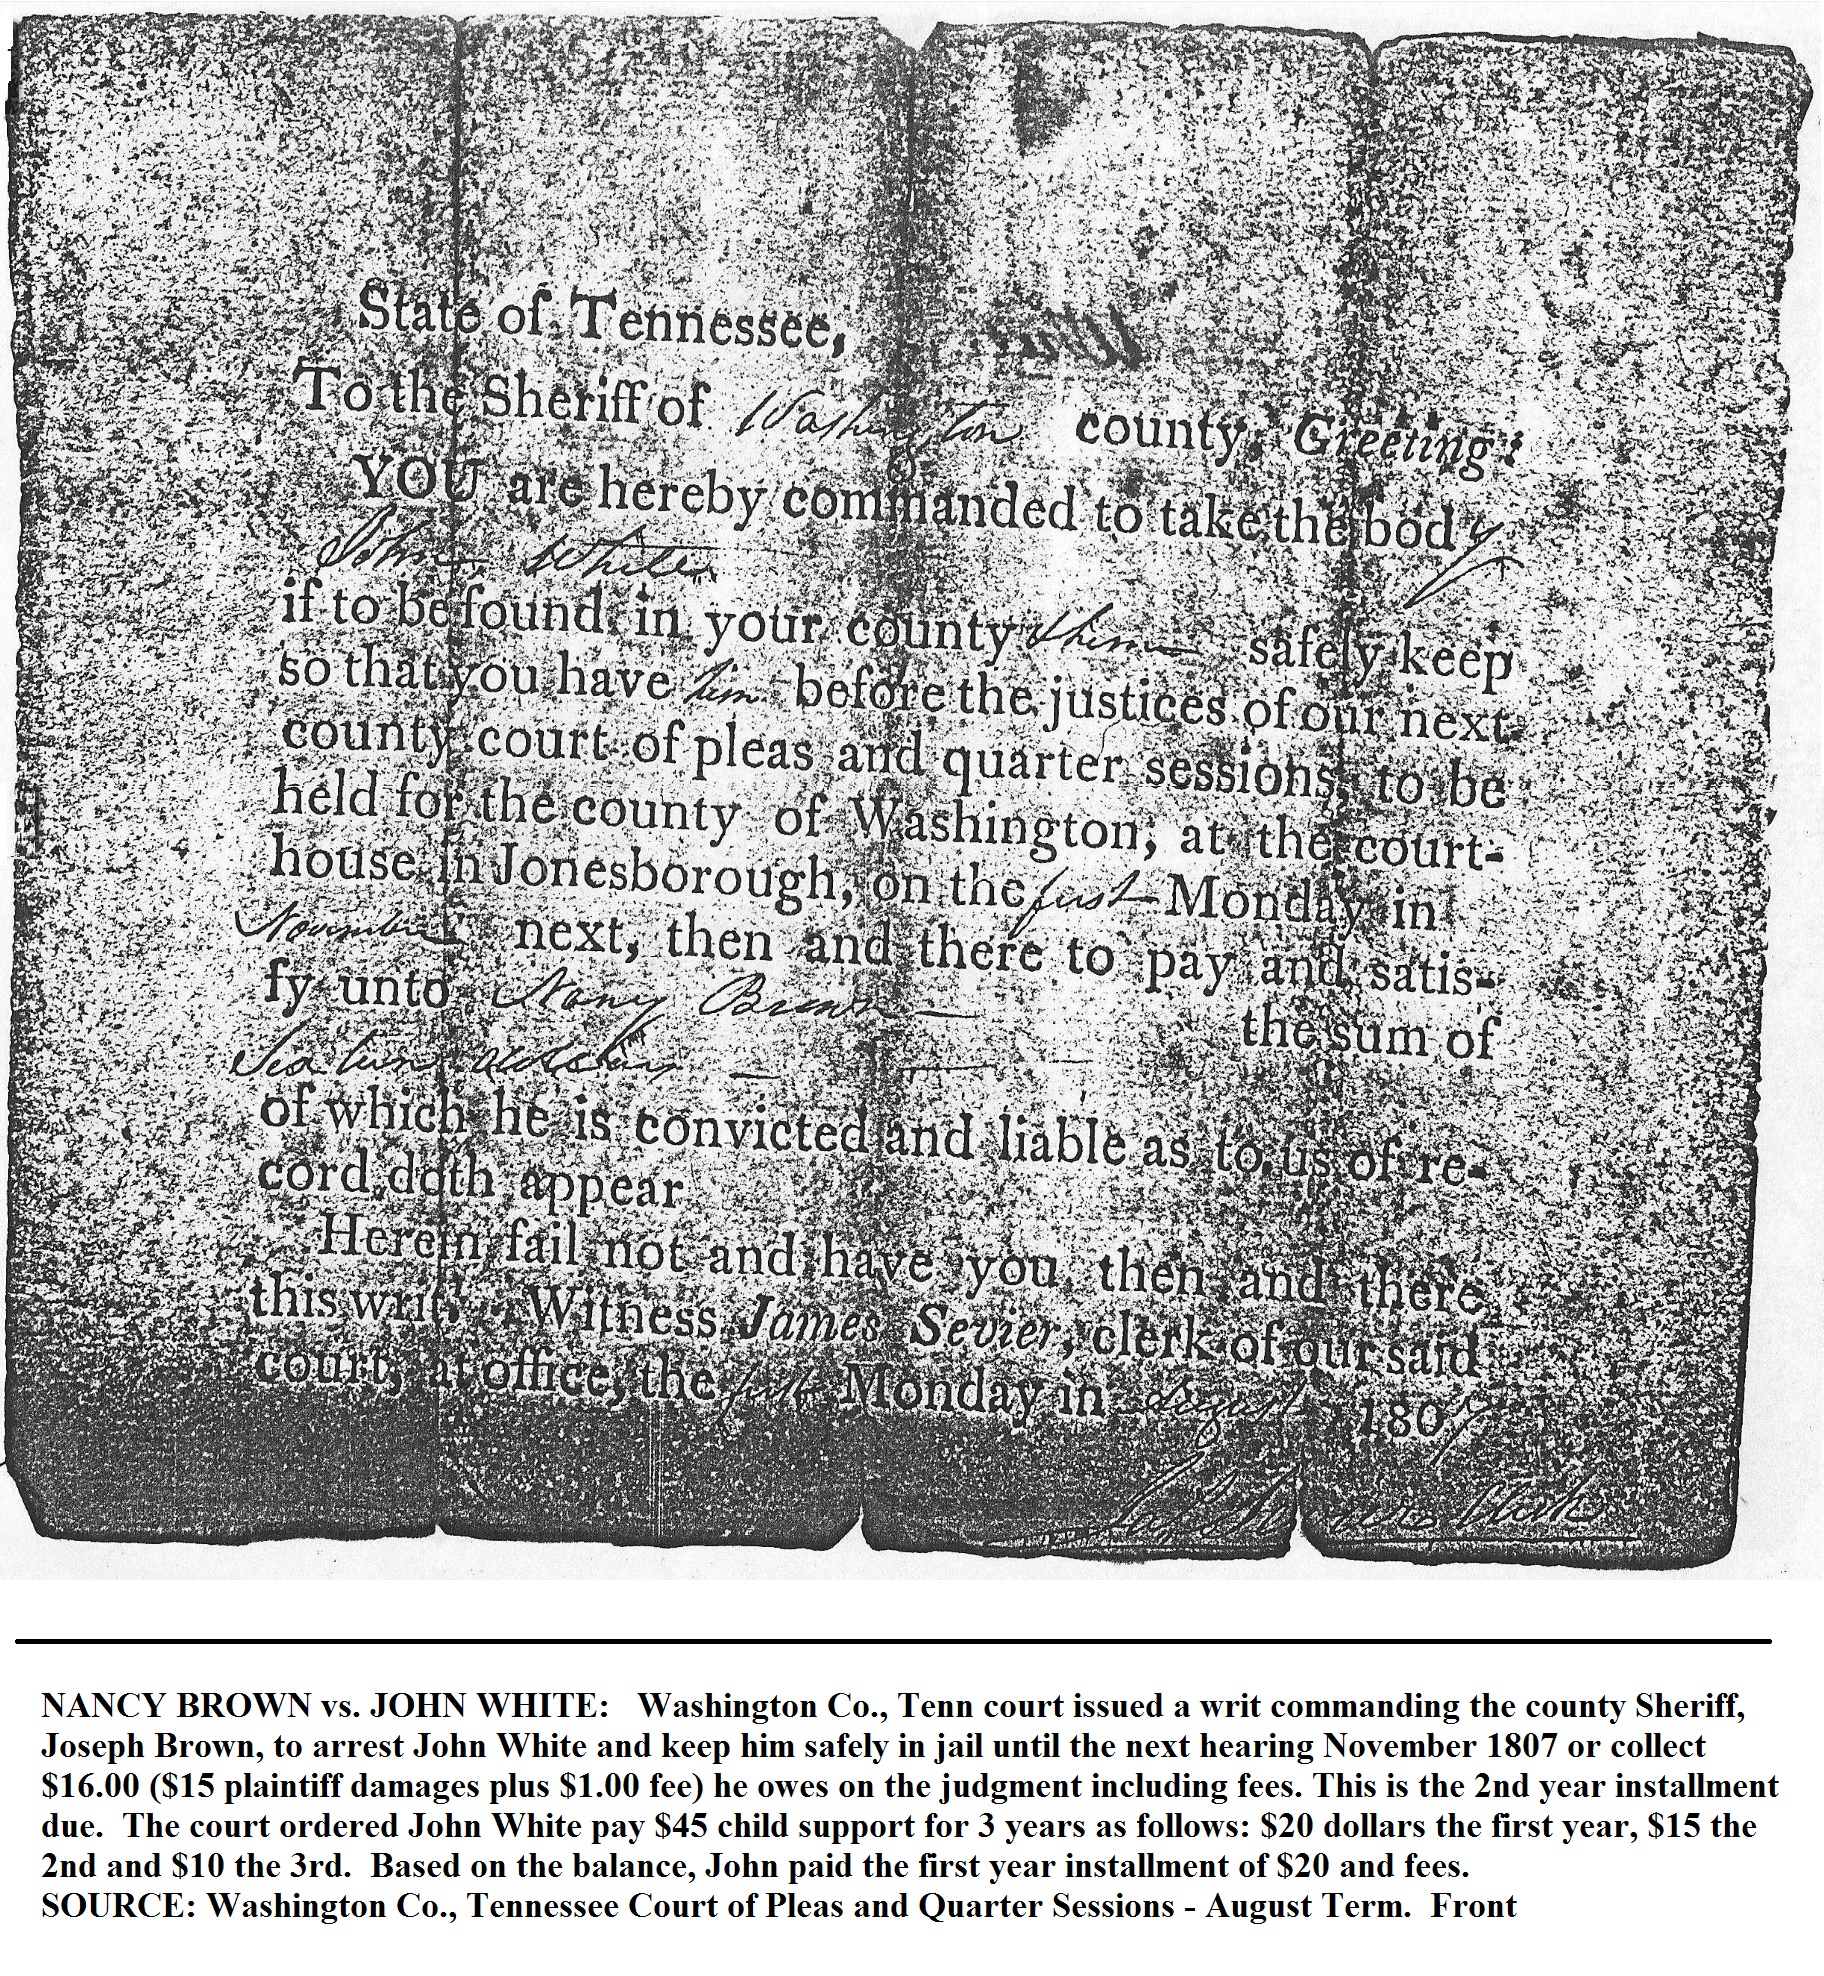 State of Tennessee,
To the Sheriff of Washington county, Greeting:
YOU are hereby commanded to take the body of
John White
if to be found in your county & him safely keep
so that you have him before the justices of our next
county court of pleas and quarter sessions, to be
held for the county of Washington, at the court-
house in Jonesborough, on the first Monday in
November next, then and there to pay and satis-
fy unto Nancy Brown the sum of
dollars
of which he is convicted and liable as to us of re-
cord doth appear
Herein fail not and have you then and there
this writ, Witness James Sevier, clerk of our said
court, at office, the first Monday in August 1807
NANCY BROWN vs. JOHN WHITE: Washington Co., Tenn court issued a writ commanding the county Sheriff,
Joseph Brown, to arrest John White and keep him safely in jail until the next hearing November 1807 or collect
$16.00 ($15 plaintiff damages plus $1.00 fee) he owes on the judgment including fees. This is the 2nd year installment
due. The court ordered John White pay $45 child support for 3 years as follows: $20 dollars the first year, $15 the
2nd and $10 the 3rd. Based on the balance, John paid the first year installment of $20 and fees.
SOURCE: Washington Co., Tennessee Court of Pleas and Quarter Sessions - August Term. Front